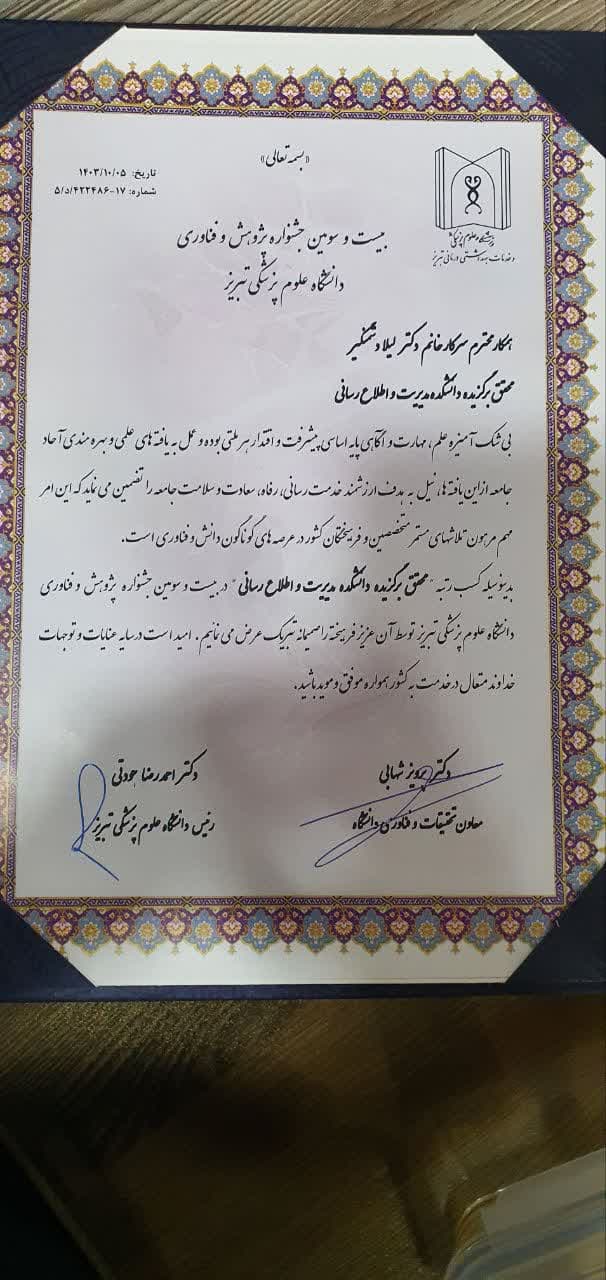 «بسمه تعالی»
تاریخ: ۱۴۰۳/۱۰/۰۵
شماره: ۵/د/۴۲۲۴۸۶-۱۷
دانشگاه علوم پزشکی
و خدمات بهداشتی درمانی تبریز
بیست و سومین جشنواره پژوهش و فناوری
دانشگاه علوم پزشکی تبریز
همکار محترم سرکار خانم دکتر لیلا دشمنگیر
محقق برگزیده دانشکده مدیریت و اطلاع رسانی
بی شک آمیزه علم، مهارت و آگاهی پایه اساسی پیشرفت و اقتدار هر ملتی بوده و عمل به یافته های علمی و بهره مندی آحاد
جامعه از این یافته ها، نیل به هدف ارزشمند خدمت رسانی، رفاه، سعادت و سلامت جامعه را تضمین می نماید که این امر
مهم مرهون تلاشهای مستمر متخصصین و فرهیختگان کشور در عرصه های گوناگون دانش و فناوری است.
بدینوسیله کسب رتبه "محقق برگزیده دانشکده مدیریت و اطلاع رسانی" در بیست و سومین جشنواره پژوهش و فناوری
دانشگاه علوم پزشکی تبریز توسط آن عزیز فرهیخته را صمیمانه تبریک عرض می نمائیم. امید است در سایه عنایات و توجهات
خداوند متعال در خدمت به کشور همواره موفق و موید باشید.
دکتر پرویز شهابی
معاون تحقیقات و فناوری دانشگاه
دکتر احمدرضا جودتی
رئیس دانشگاه علوم پزشکی تبریز